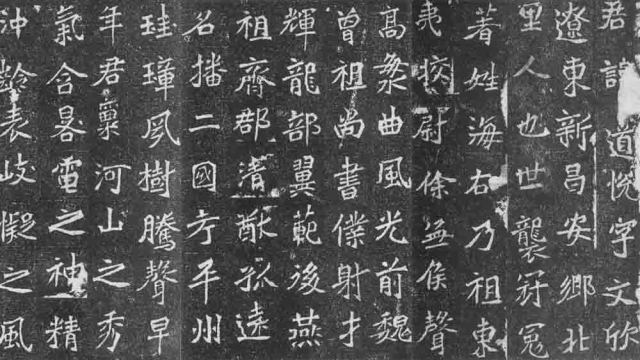 君諱道悅字文欣
遼東新昌安鄉北
里人也世襲冠冕
著姓海右乃祖東
夷挍尉徐無侯聲
高粲曲風光前魏
曾祖尚書僕射才
輝龍部翼範後燕
祖齊郡清猷孤遠
名播二國考平州
珪璋夙樹騰聲早
年君稟河山之秀
氣含晷電之神精
沖齡表岐擬之風